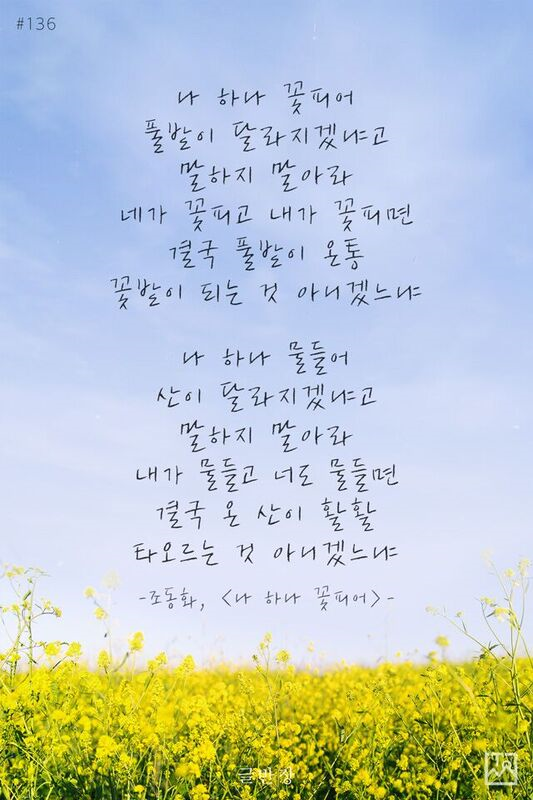 #136
나 하나 꽃피어
풀밭이 달라지겠냐고
말하지 말아라
네가 꽃피고 내가 꽃피면
결국 풀밭이 온통
꽃밭이 되는 것 아니겠느냐
나 하나 물들어
산이 달라지겠냐고
말하지 말아라
내가 물들고 너도 물들면
결국 온 산이 활활
타오르는 것 아니겠느냐
-조동화, <나 하나 꽃피어>-
글반장